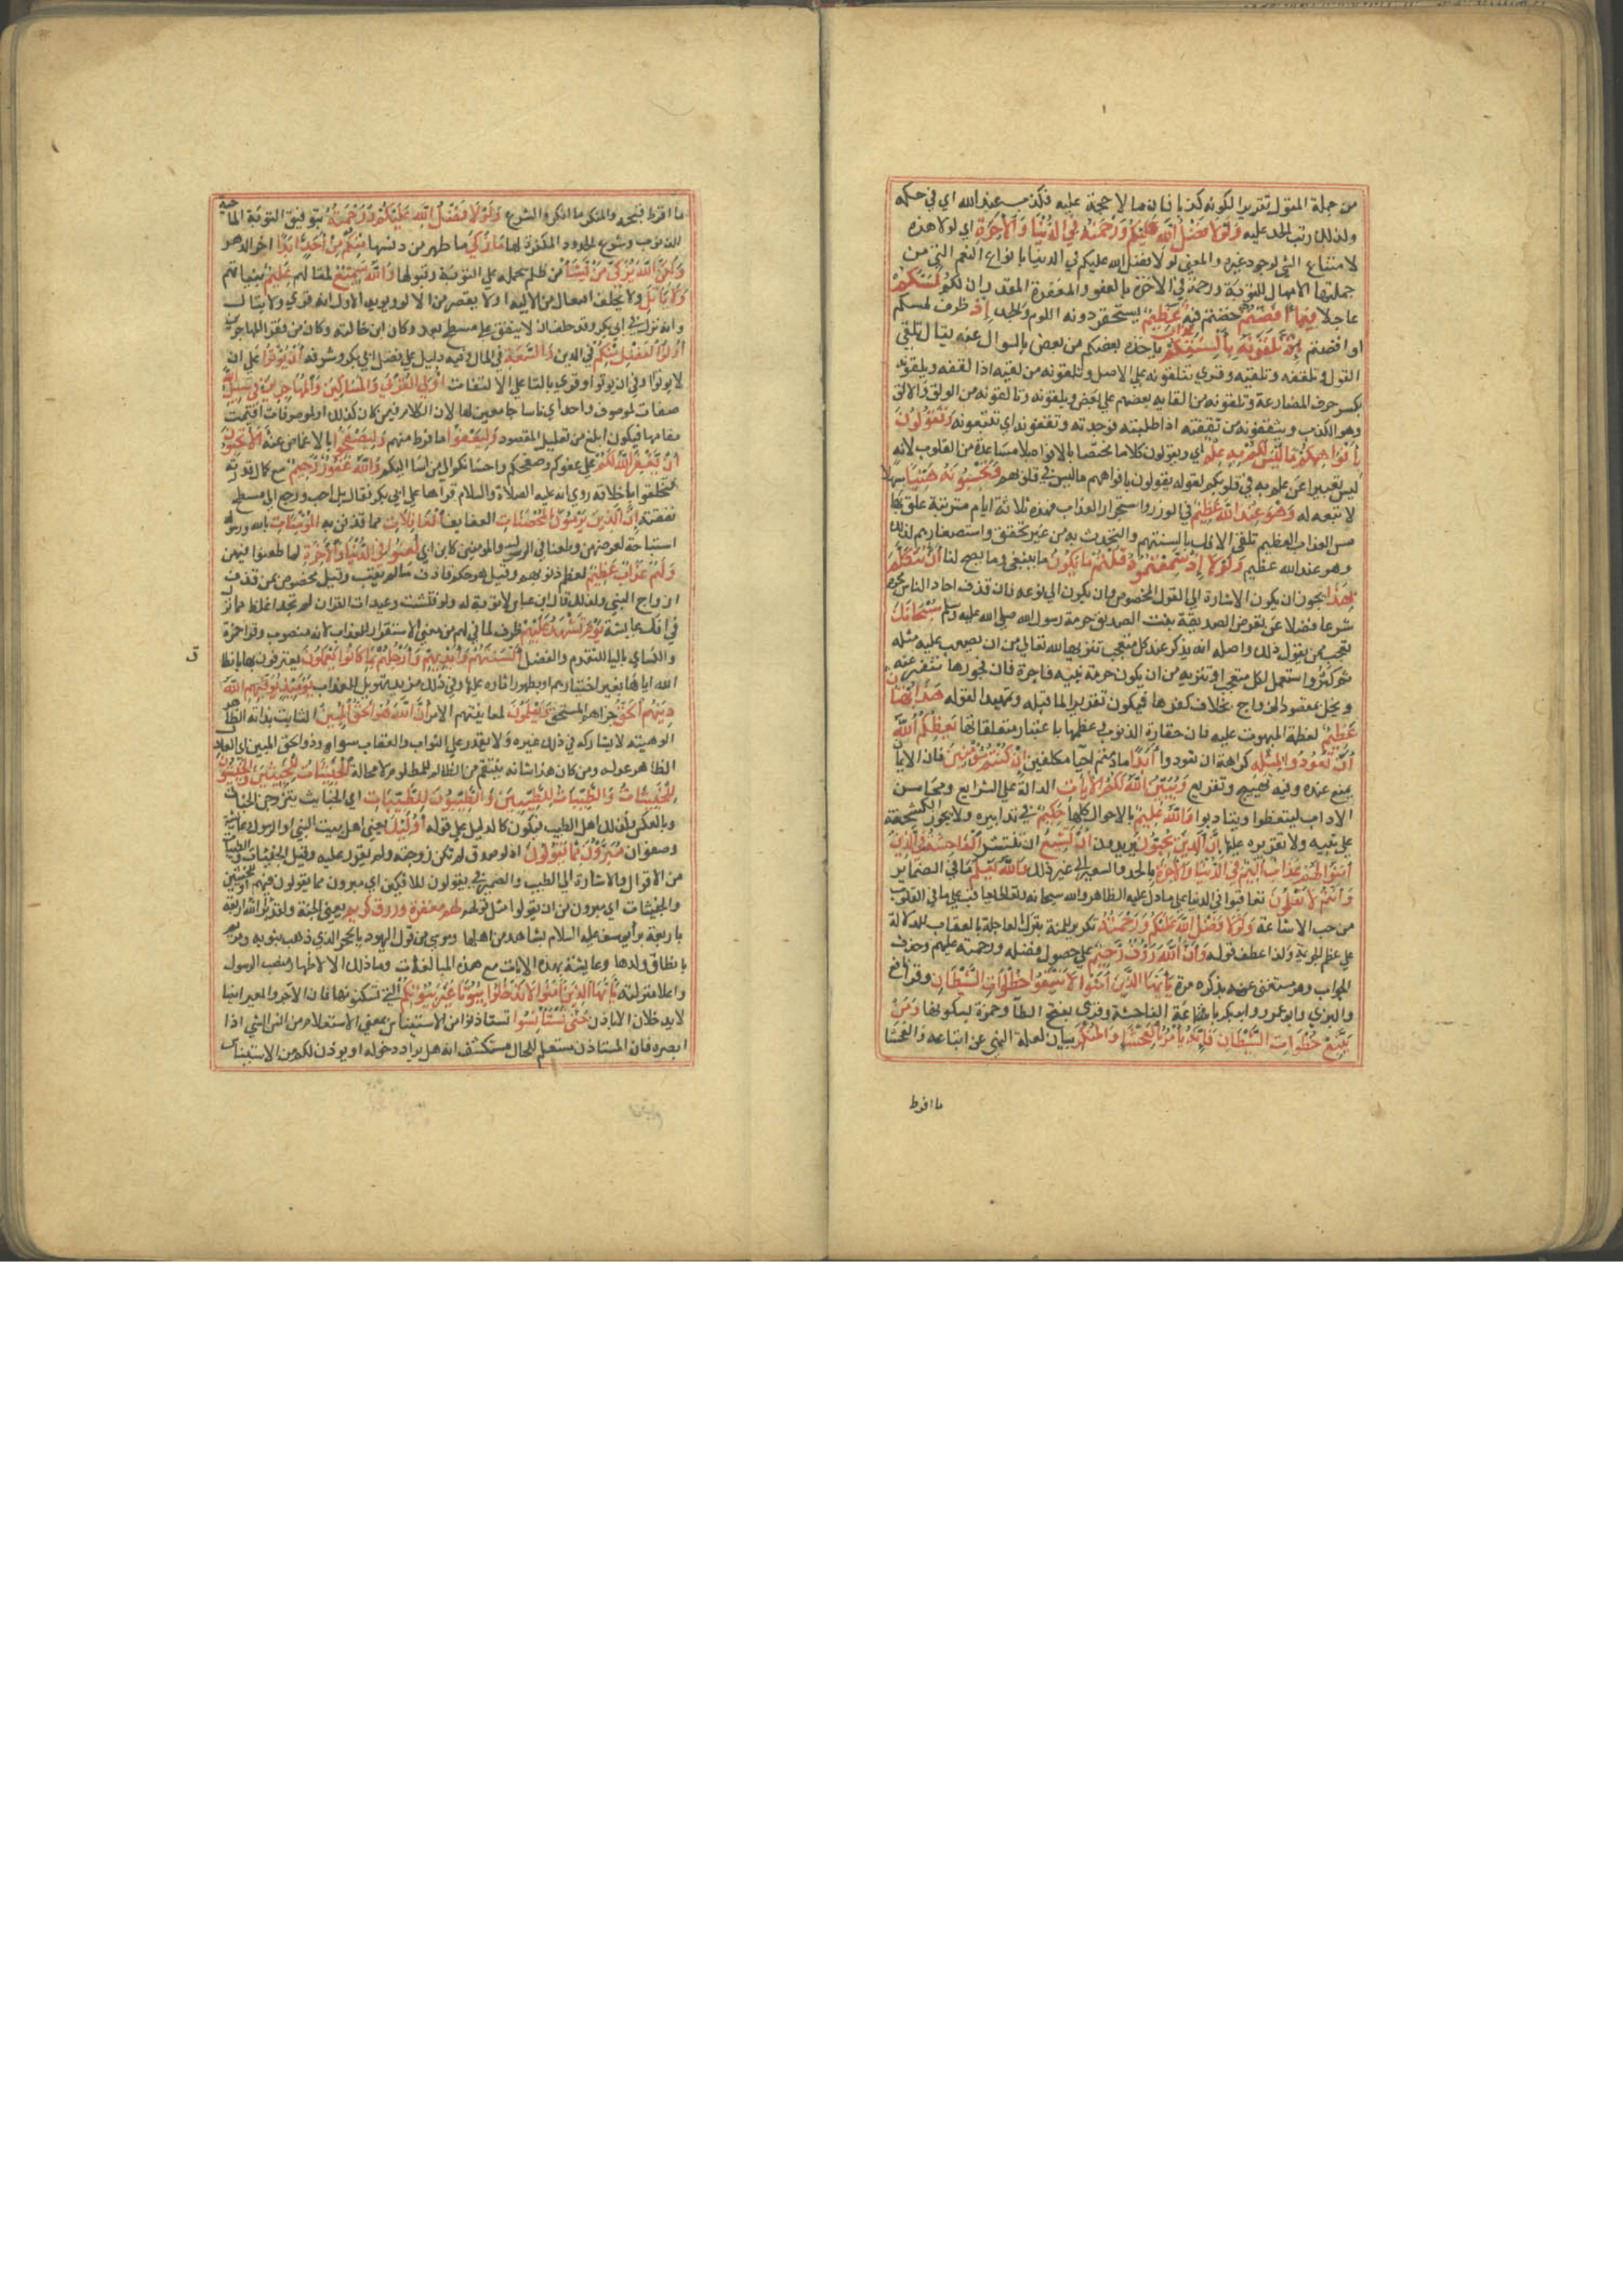 من جملة المقول تقريرا لكونه كذبا فان ما لا حجة عليه فكذب عند الله اي في حكمه
ولذلك رتب الحد عليه وَلَوْلَا فَضْلُ اللَّهِ عَلَيْكُمْ وَرَحْمَتُهُ فِي الدُّنْيَا وَالْآخِرَةِ اي لولا هذه
لامتناع الشي لوجود غيره والمعنى لولا فضل الله عليكم في الدنيا بانواع النعم التي من
جملتها الامهال للتوبة ورحمته في الآخرة بالعفو والمغفرة المقدران لكم لَمَسَّكُمْ
عاجلا فِيمَا أَفَضْتُمْ خضتم فيه عَذَابٌ عَظِيمٌ يستحقر دونه اللوم والجلد إِذْ ظرف لمسكم
او افضتم تَلَقَّوْنَهُ بِأَلْسِنَتِكُمْ ياخذه بعضكم من بعض بالسوال عنه يقال تلقى
القول وتلقفه وتلقنه وقري تتلقونه على الاصل وتلقونه من لقيه اذا لقفه ويلقونه
بكسر حرف المضارعة وتلقونه من القايه بعضهم على بعض ويلقونه وتالقونه من الولق والالق
وهو الكذب ويثقفونه من ثقفته اذا طلبته فوجدته وتقفونه اي تتبعونه وَتَقُولُونَ
بِأَفْوَاهِكُمْ مَا لَيْسَ لَكُمْ بِهِ عِلْمٌ اي وتقولون كلاما مختصا بالافواه بلا مساعدة من القلوب لانه
ليس تعبيرا عن علم به في قلوبكم لقوله يقولون بافواههم ما ليس في قلوبهم وَتَحْسَبُونَهُ هَيِّنًا سهلا
لا تبعة له وَهُوَ عِنْدَ اللَّهِ عَظِيمٌ في الوزر واستجرار العذاب فهذه ثلاثة ايام مترتبة علق بها
مس العذاب العظيم تلقي الافك بالسنتهم والتحدث به من غير تحقق واستصغارهم لذلك
وهو عند الله عظيم وَلَوْلَا إِذْ سَمِعْتُمُوهُ قُلْتُمْ مَا يَكُونُ ما ينبغي وما يصح لنا أَنْ نَتَكَلَّمَ
بِهَذَا يجوز ان يكون الاشارة الى القول المخصوص وان يكون الى نوعه فان قذف احاد الناس محرم
شرعا فضلا عن تعرض الصديقة بنت الصديق حرمة رسول الله صلى الله عليه وسلم سُبْحَانَكَ
تعجب من يقول ذلك واصله انه يذكر عند كل متعجب تنزيها لله تعالى من ان يصعب عليه مثله
ثم كثر واستعمل لكل متعجب او تنزيه من ان يكون حرمة نبيه فاجرة فان فجورها تنفير عنه
ويخل بمقصود الزواج بخلاف كفرها فيكون تقريرا لما قبله وتمهيدا لقوله هَذَا بُهْتَانٌ
عَظِيمٌ لعظمة المبهوت عليه فان حقارة الذنوب وعظمها باعتبار متعلقاتها يَعِظُكُمُ اللَّهُ
أَنْ تَعُودُوا لِمِثْلِهِ كراهة ان تعودوا أَبَدًا ما دمتم احيا مكلفين إِنْ كُنْتُمْ مُؤْمِنِينَ فان الايمان
يمنع عنه وفيه تهييج وتقريع وَيُبَيِّنُ اللَّهُ لَكُمُ الْآيَاتِ الدالة على الشرايع ومحاسن
الاداب لتتعظوا وتتادبوا وَاللَّهُ عَلِيمٌ بالاحوال كلها حَكِيمٌ في تدابيره ولا يجوز الكشحنة
على نبيه ولا تقريره عليها إِنَّ الَّذِينَ يُحِبُّونَ يريدون أَنْ تَشِيعَ ان تنتشر الْفَاحِشَةُ فِي الَّذِينَ
آمَنُوا لَهُمْ عَذَابٌ أَلِيمٌ فِي الدُّنْيَا وَالْآخِرَةِ بالحد والسعير الى غير ذلك وَاللَّهُ يَعْلَمُ ما في الضماير
وَأَنْتُمْ لَا تَعْلَمُونَ فعاقبوا في الدنيا على ما دل عليه الظاهر والله سبحانه وتعالى يعاقب على ما في القلوب
من حب الاشاعة وَلَوْلَا فَضْلُ اللَّهِ عَلَيْكُمْ وَرَحْمَتُهُ تكرير للمنة بترك المعاجلة بالعقاب للدلالة
على عظم الجريمة ولذا عطف قوله وَأَنَّ اللَّهَ رَؤُوفٌ رَحِيمٌ على حصول فضله ورحمته عليهم وحذف
الجواب وهو مستغنى عنه بذكره مرة يَا أَيُّهَا الَّذِينَ آمَنُوا لَا تَتَّبِعُوا خُطُوَاتِ الشَّيْطَانِ وقرا نافع
والبزي وابو عمرو وابو بكر باشاعة الفاحشة وقري بفتح الطا وحمزة بسكونها وَمَنْ
يَتَّبِعْ خُطُوَاتِ الشَّيْطَانِ فَإِنَّهُ يَأْمُرُ بِالْفَحْشَاءِ وَالْمُنْكَرِ بيان لعلة النهي عن اتباعه والفحشا
ما افرط
ما افرط قبحه والمنكر ما انكره الشرع وَلَوْلَا فَضْلُ اللَّهِ عَلَيْكُمْ وَرَحْمَتُهُ بتوفيق التوبة الماحية
للذنوب وشرع الحدود المكفرة لها مَا زَكَى ما طهر من دنسها مِنْكُمْ مِنْ أَحَدٍ أَبَدًا اخر الدهر
وَلَكِنَّ اللَّهَ يُزَكِّي مَنْ يَشَاءُ من ظلم بحمله على التوبة وقبولها وَاللَّهُ سَمِيعٌ لمقالهم عَلِيمٌ بنياتهم
وَلَا يَأْتَلِ ولا يحلف افتعال من الالية او لا يقصر من الالو ويويد الاول انه قري ولا يتال
وانه نزل في ابي بكر وقد حلف ان لا ينفق على مسطح بعد وكان ابن خالته وكان من فقرا المهاجرين
أُولُو الْفَضْلِ مِنْكُمْ في الدين وَالسَّعَةِ في المال وفيه دليل على فضل ابي بكر وشرفه أَنْ يُؤْتُوا على ان
لا يوتوا او في ان يوتوا وقري بالتا على الالتفات أُولِي الْقُرْبَى وَالْمَسَاكِينَ وَالْمُهَاجِرِينَ فِي سَبِيلِ اللَّهِ
صفات لموصوف واحد اي ناسا جامعين لها لان الكلام فيمن كان كذلك او لموصوفات اقيمت
مقامها فيكون ابلغ من تعليل المقصود وَلْيَعْفُوا ما فرط منهم وَلْيَصْفَحُوا بالاغماض عنه أَلَا تُحِبُّونَ
أَنْ يَغْفِرَ اللَّهُ لَكُمْ على عفوكم وصفحكم واحسانكم الى من اسا اليكم وَاللَّهُ غَفُورٌ رَحِيمٌ مع كمال قدرته
فتخلقوا باخلاقه روي انه عليه الصلاة والسلام قراها على ابي بكر فقال بل احب ورجع الى مسطح
نفقته إِنَّ الَّذِينَ يَرْمُونَ الْمُحْصَنَاتِ العفايف الْغَافِلَاتِ مما قذفن به الْمُؤْمِنَاتِ بالله ورسوله
استباحة لعرضهن وطعنا في الرسول والمومنين كابن ابي لُعِنُوا فِي الدُّنْيَا وَالْآخِرَةِ لما طعنوا فيهن
وَلَهُمْ عَذَابٌ عَظِيمٌ لعظم ذنوبهم وقيل هو حكم قاذف ما لم يتب وقيل مخصوص بمن قذف
ازواج النبي ولذلك قال ابن عباس لا توبة له ولو فتشت وعيدات القران لم تجد اغلظ مما نزل
في افك عايشة يَوْمَ تَشْهَدُ عَلَيْهِمْ ظرف لما في لهم من معنى الاستقرار للعذاب لانه منصوب وقرا حمزة
والكساي باليا للتقدم والفصل أَلْسِنَتُهُمْ وَأَيْدِيهِمْ وَأَرْجُلُهُمْ بِمَا كَانُوا يَعْمَلُونَ يعترفون بها بانطاق
ق
الله اياها بغير اختيارهم او بظهور اثاره عليها وفي ذلك مزيد تهويل للعذاب يَوْمَئِذٍ يُوَفِّيهِمُ اللَّهُ
دِينَهُمُ الْحَقَّ جزاهم المستحق وَيَعْلَمُونَ لمعاينتهم الامر أَنَّ اللَّهَ هُوَ الْحَقُّ الْمُبِينُ الثابت بذاته الظاهر
الوهيته لا يشاركه في ذلك غيره ولا يقدر على الثواب والعقاب سواه او ذو الحق المبين اي العادل
الظاهر عدله ومن كان هذا شانه ينتقم من الظالم للمظلوم لا محالة الْخَبِيثَاتُ لِلْخَبِيثِينَ وَالْخَبِيثُونَ
لِلْخَبِيثَاتِ وَالطَّيِّبَاتُ لِلطَّيِّبِينَ وَالطَّيِّبُونَ لِلطَّيِّبَاتِ اي الخبايث يتزوجن الخباث
وبالعكس وكذلك اهل الطيب فيكون كالدليل على قوله أُولَئِكَ يعني اهل بيت النبي او الرسول وعايشة
وصفوان مُبَرَّءُونَ مِمَّا يَقُولُونَ اذ لو صدق لم تكن زوجته ولم يقرر عليه وقيل الخبيثات والطيبات
من الاقوال والاشارة الى الطيبين والضمير في يقولون للافكين اي مبرون مما يقولون فيهم او للخبيثين
والخبيثات اي مبرون من ان يقولوا مثل قولهم لَهُمْ مَغْفِرَةٌ وَرِزْقٌ كَرِيمٌ يعني الجنة ولقد برا الله اربعة
باربعة برا يوسف عليه السلام بشاهد من اهلها وموسى من قول اليهود بالحجر الذي ذهب بثوبه ومريم
بانطاق ولدها وعايشة بهذه الايات مع هذه المبالغات وما ذلك الا لاظهار منصب الرسول
واعلا منزلته يَا أَيُّهَا الَّذِينَ آمَنُوا لَا تَدْخُلُوا بُيُوتًا غَيْرَ بُيُوتِكُمْ التي تسكنونها فان الاجر والمعير ايضا
لا يدخلان الا باذن حَتَّى تَسْتَأْنِسُوا تستاذنوا من الاستيناس بمعنى الاستعلام من انس الشي اذا
ابصره فان المستاذن مستعلم للحال مستكشف انه هل يراد دخوله او يوذن لكم من الاستيناس